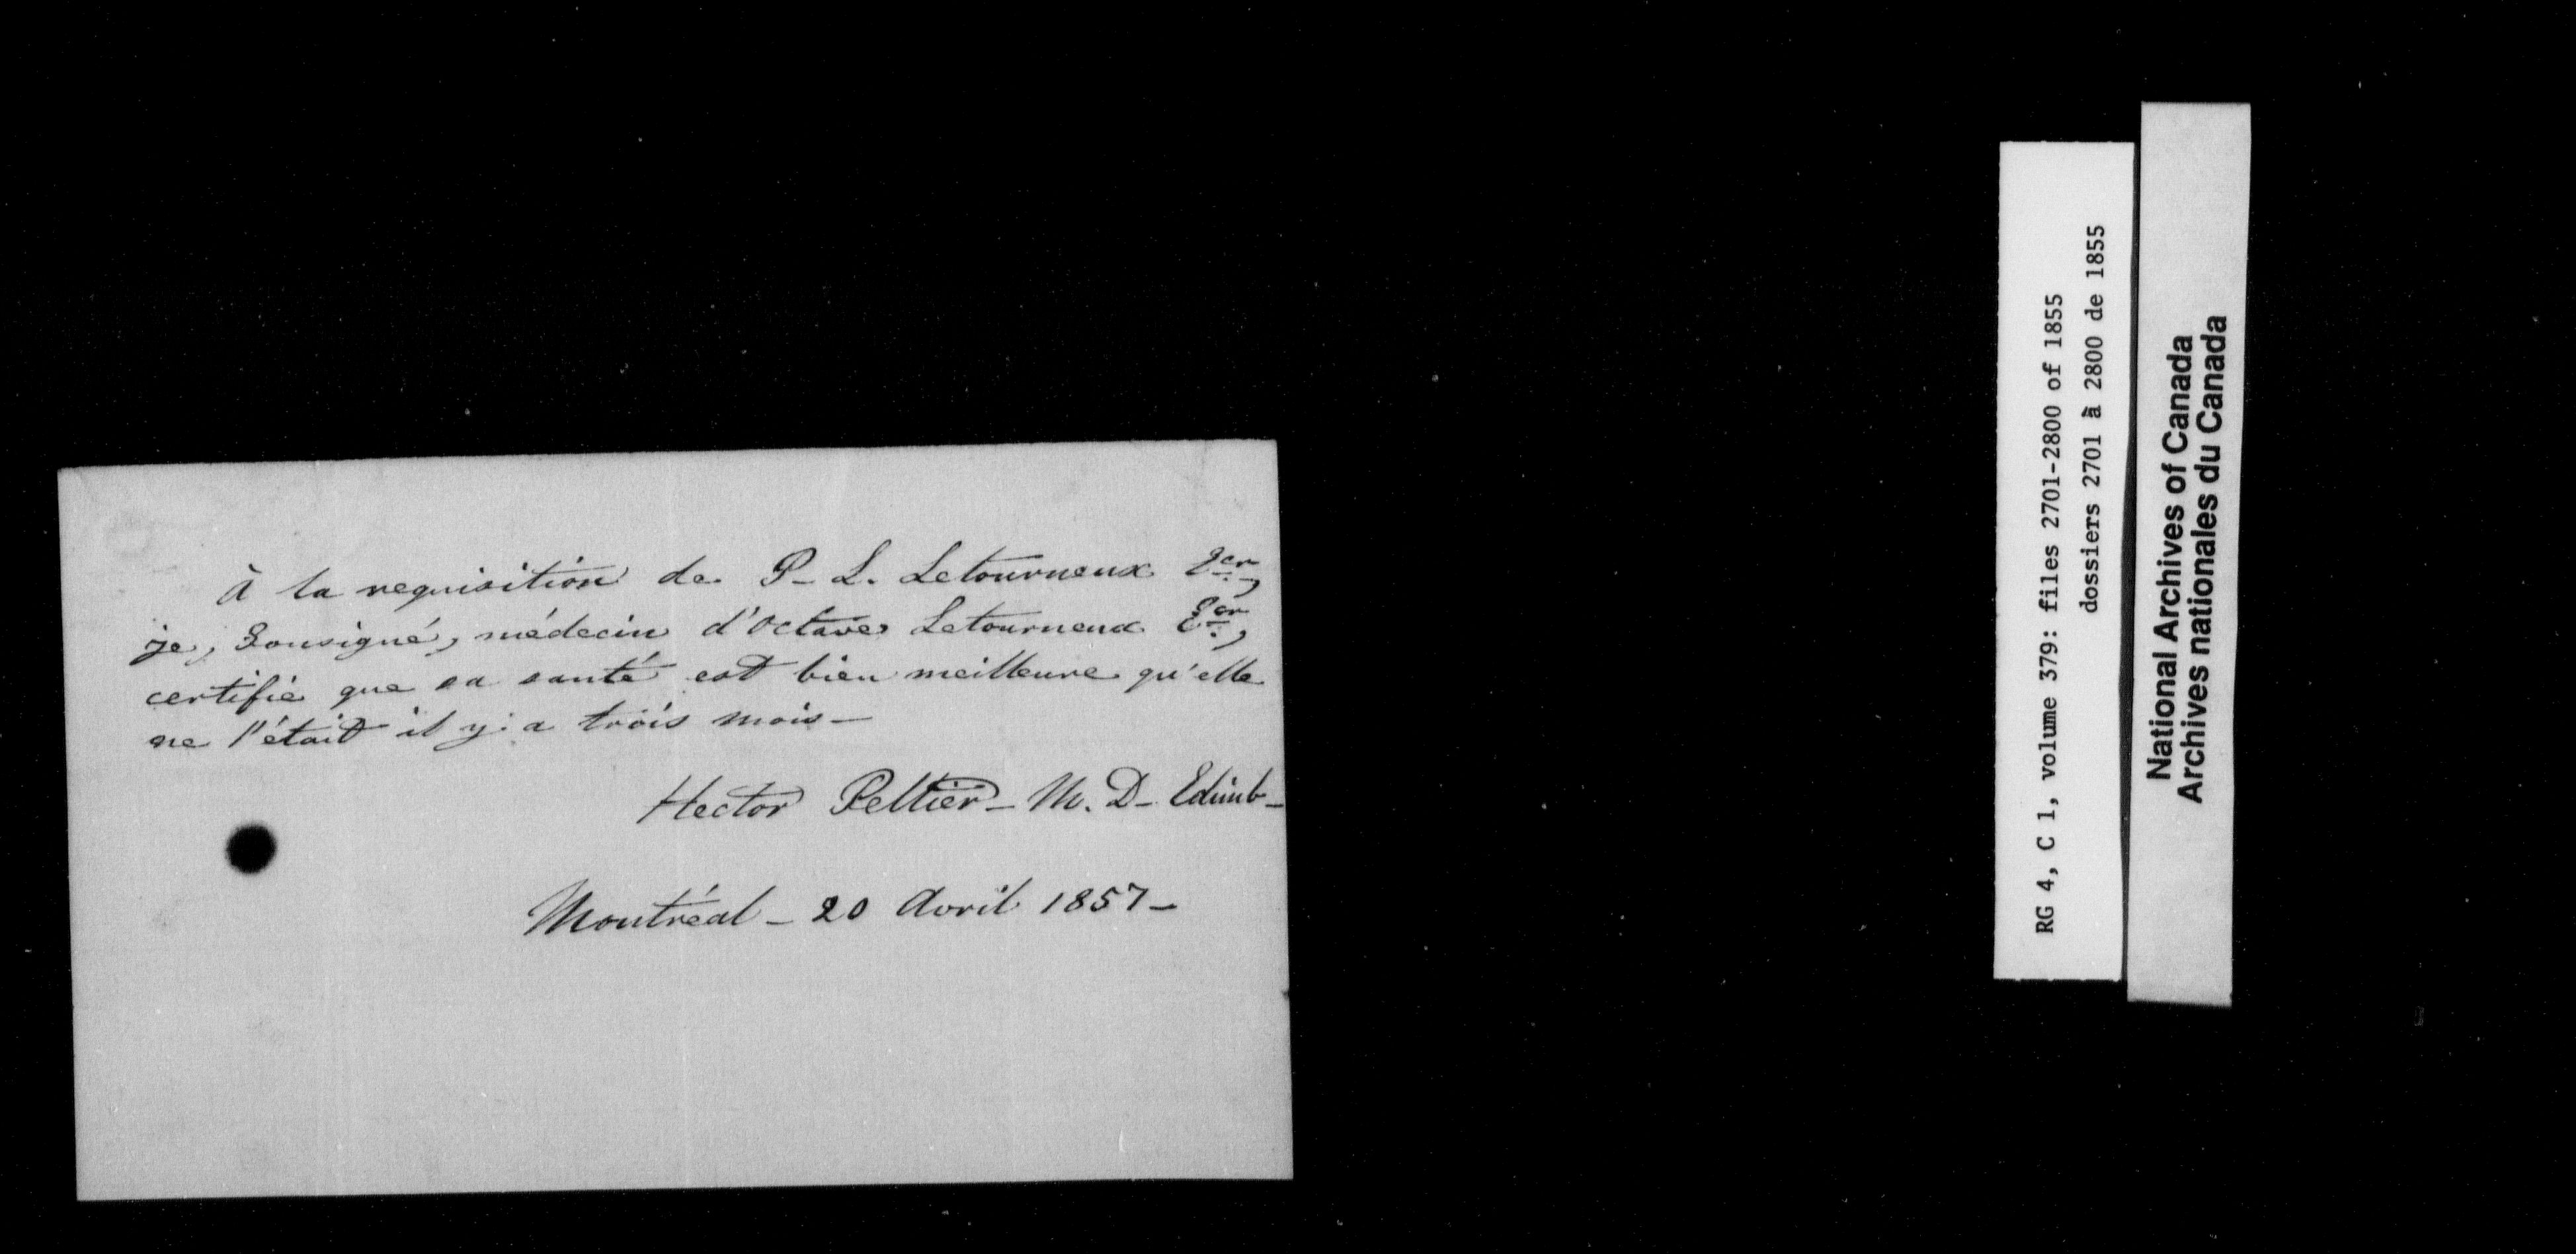 À la requisition de P- L. Letourneux Ecr,
je, Sousigné, médecin d'Octave Letourneux Ecr,
certifie que sa santé est bien meilleure qu'elle
ne l'était il y a trois mois-
Hector Peltier- M. D- Edimb-
Montréal - 20 Avril 1857-
RG 4, C 1, volume 379: files 2701-2800 of 1855
dossiers 2701 à 2800 de 1855
National Archives of Canada
Archives nationales du Canada